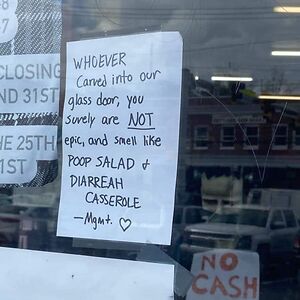 -8
-7
CLOSING
ND 31ST
HE 25TH
1ST
WHOEVER
Carved into our
glass door, you
surely are NOT
epic, and smell like
POOP SALAD &
DIARREAH
CASSEROLE
—Mgmt. ♡
NO
CASH